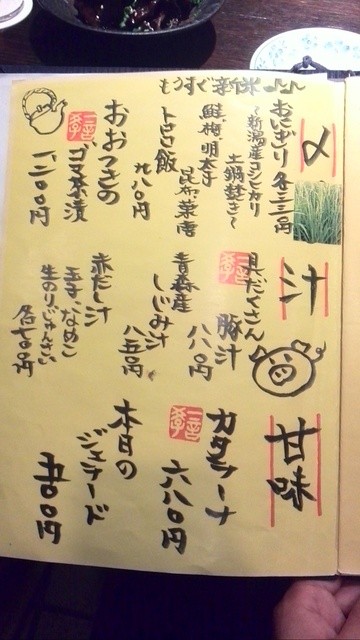 もうすぐ新米
〆
おにぎり 各三三〇円
〜新潟産コシヒカリ
土鍋炊き〜
鮭、梅、明太子
昆布、葉唐
トロロ飯
九八〇円
おおつきの
ゴマ茶漬
一二〇〇円
汁
具だくさん
豚汁
八八〇円
青森産
しじみ汁
八五〇円
赤だし汁
玉子、なめこ
生のり、じゅんさい
各七〇〇円
甘味
カタラーナ
六八〇円
本日の
ジェラード
五〇〇円